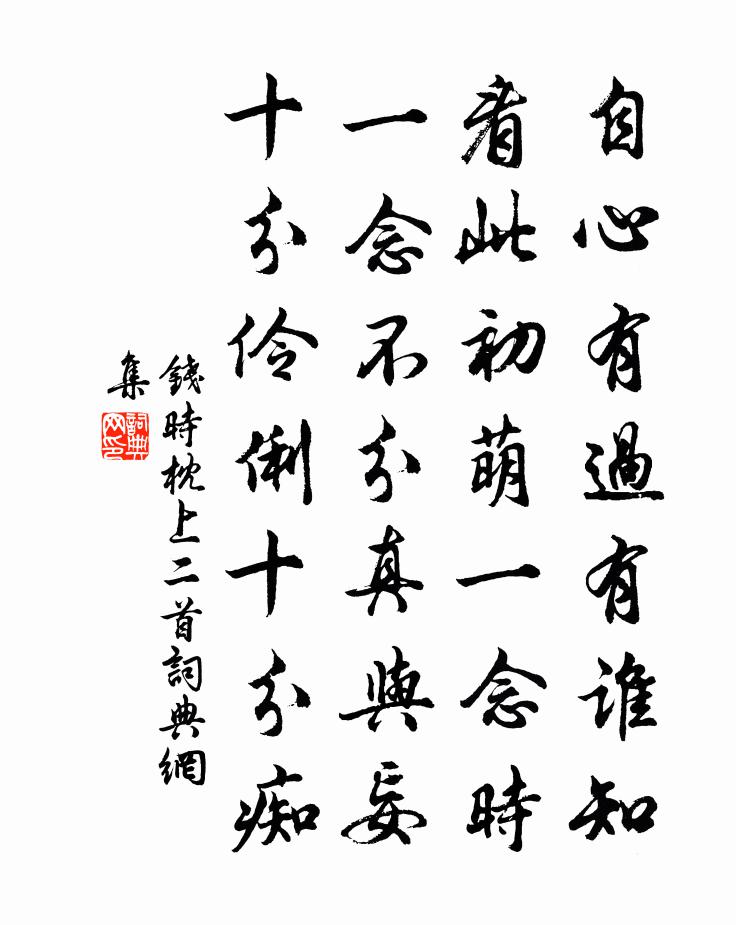 自心有過有誰知
看此初萌一念時
一念不分真與妄
十分伶俐十分痴
錢時枕上二首詞典網
集
詞典
网印